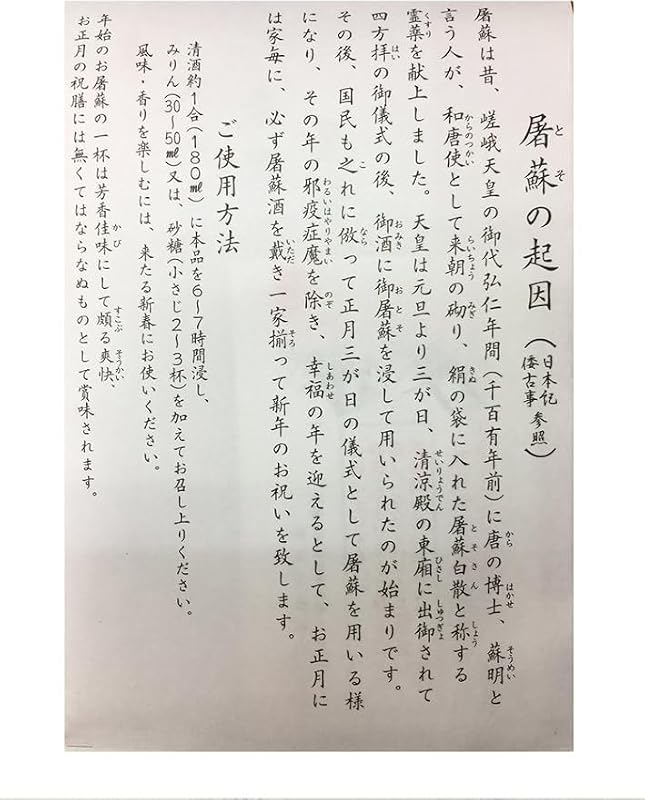 屠蘇の起因（日本記倭古事参照）
屠蘇は昔、嵯峨天皇の御代弘仁年間（千百有年前）に唐の博士、蘇明と
言う人が、和唐使として来朝の砌り、絹の袋に入れた屠蘇白散と称する
霊薬を献上しました。天皇は元旦より三が日、清涼殿の東廂に出御されて
四方拝の御儀式の後、御酒に御屠蘇を浸して用いられたのが始まりです。
その後、国民も之れに倣って正月三が日の儀式として屠蘇を用いる様
になり、その年の邪疫症魔を除き、幸福の年を迎えるとして、お正月に
は家毎に、必ず屠蘇酒を戴き一家揃って新年のお祝いを致します。
ご使用方法
清酒約1合（180㎖）に本品を6〜7時間浸し、
みりん（30〜50㎖）又は、砂糖（小さじ2〜3杯）を加えてお召し上りください。
風味・香りを楽しむには、来たる新春にお使いください。
年始のお屠蘇の一杯は芳香佳味にして頗る爽快、
お正月の祝膳には無くてはならなぬものとして賞味されます。